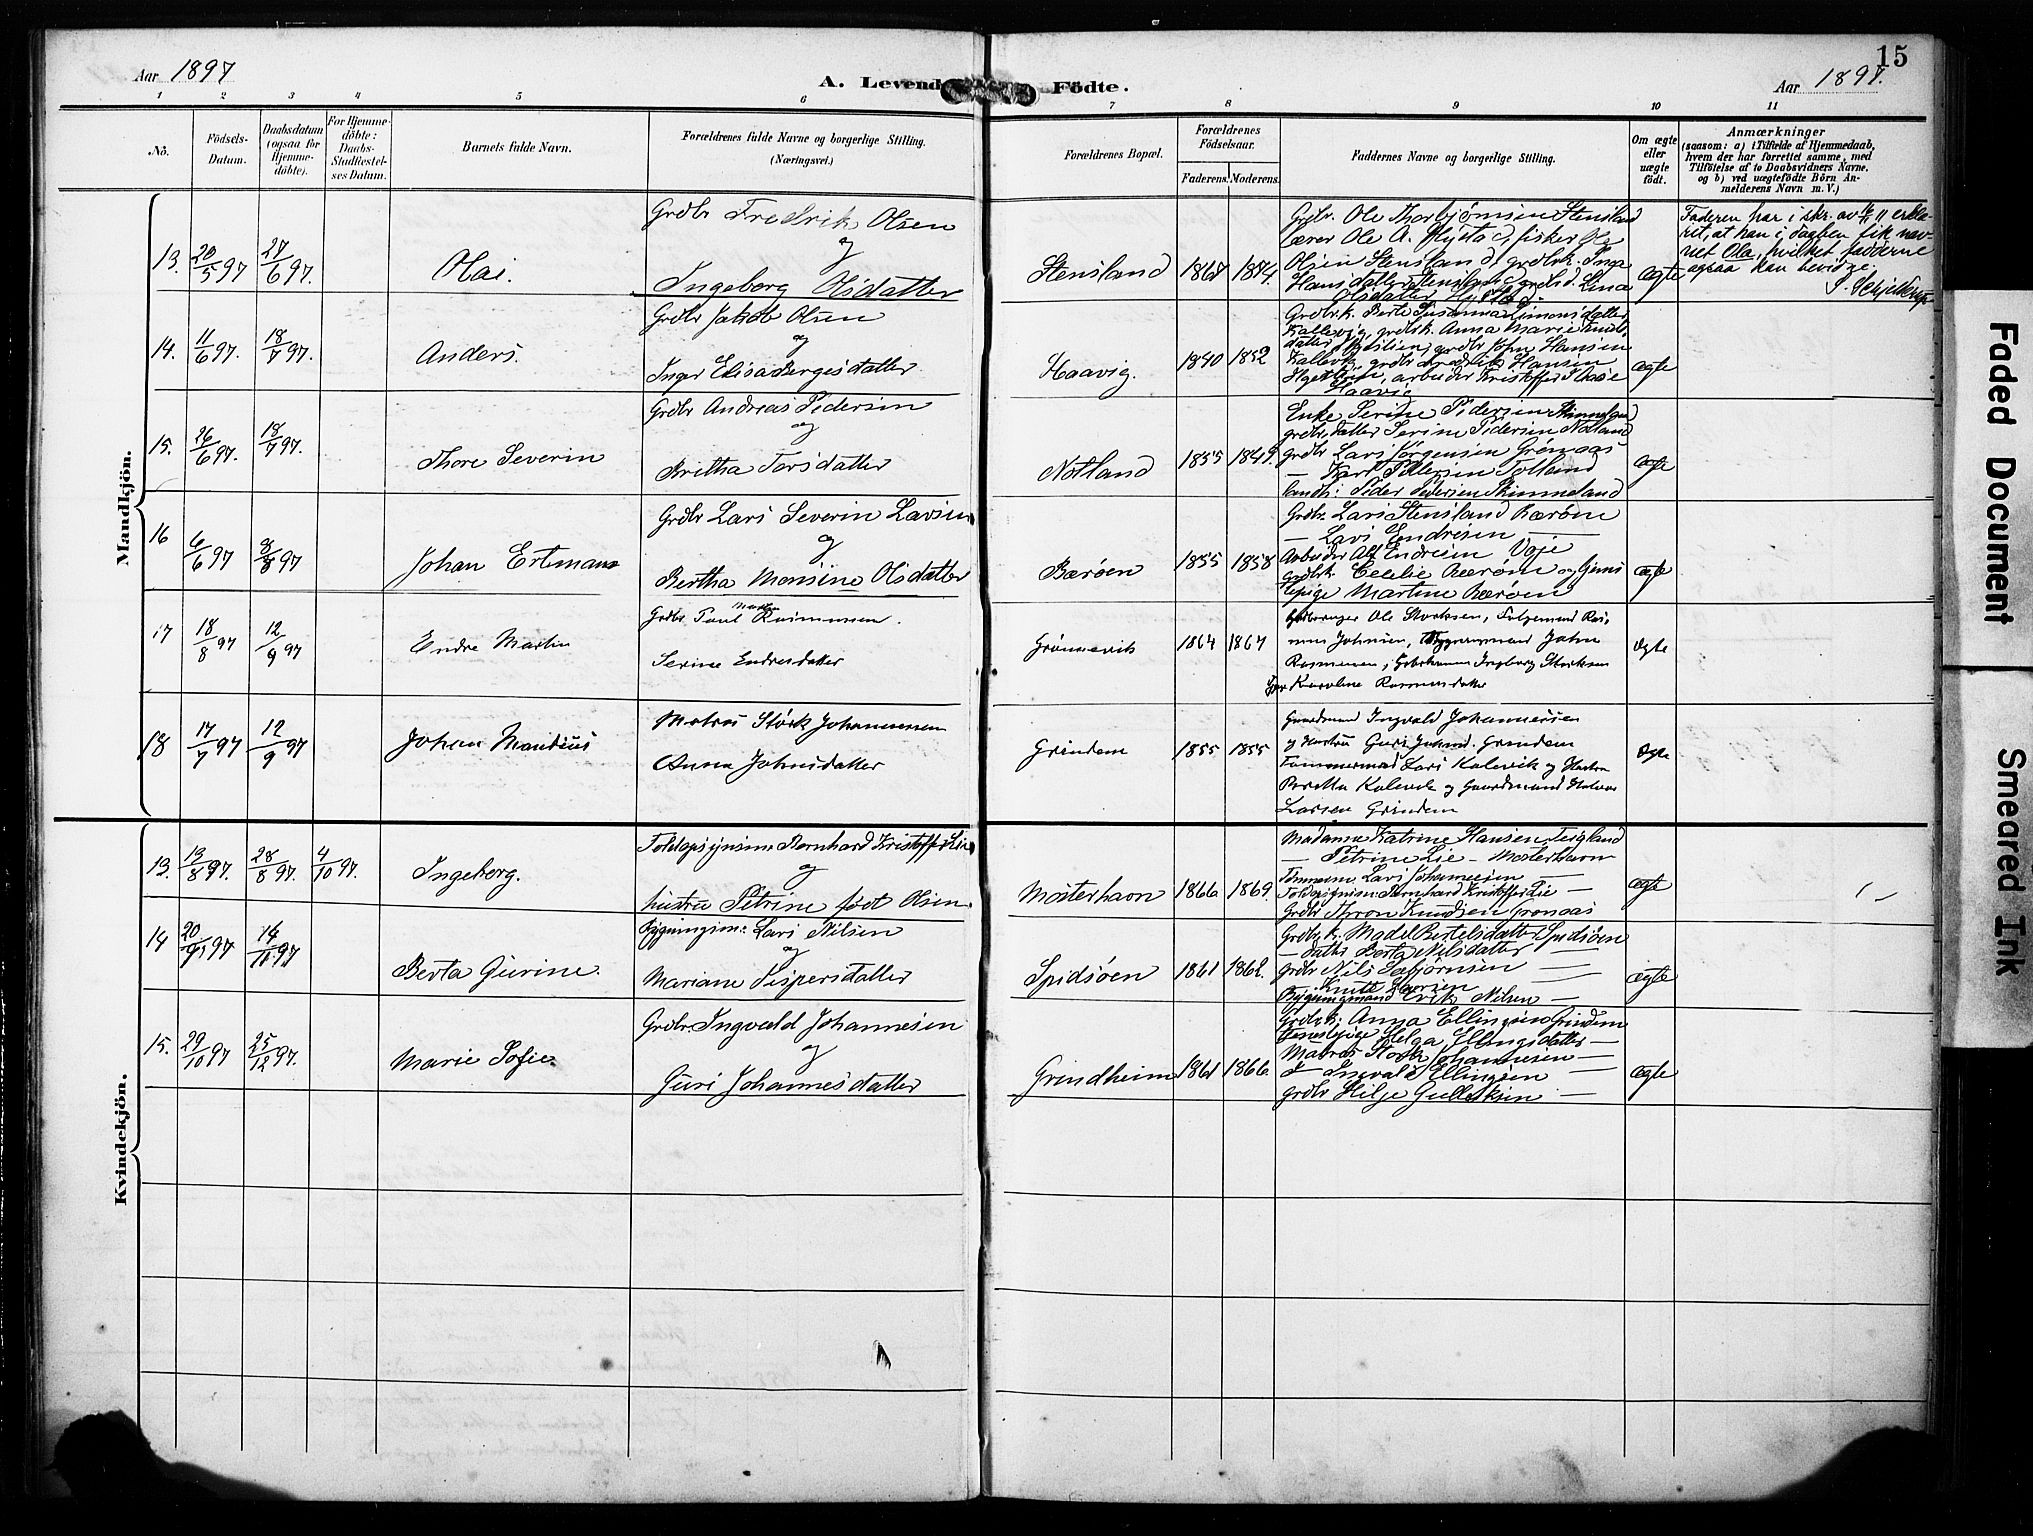 Aar 1897
A. Levende Födte.
15
Aar 1897.
1 2 3 4 5 6 7 8 9 10 11
No.
Födsels-Datum.
Daabsdatum (ogsaa for Hjemme-döbte).
For Hjemme-döbte: Daabs-Stadfæstel-ses Datum.
Barnets fulde Navn.
Forældrenes fulde Navne og borgerlige Stilling. (Næringsvei.)
Forældrenes Bopæl.
Forældrenes Födselsaar.
Faderens. Moderens.
Faddernes Navne og borgerlige Stilling.
Om ægte eller uægte födt.
Anmærkninger
(saasom: a) i Tilfælde af Hjemmedaab, hvem der har forrettet samme, med Tilföielse af to Daabsvidners Navne. og b) ved uægtefödte Börn An-melderens Navn m. V.)
Mandkjön.
13. 20/5 97 27/6 97. Olai.
Grdbr Fredrik Olsen
og
Ingeborg Olsdatter
Stensland 1864 1874.
Grdbr. Ole Thorbjørnsen Stensland
lærer Ole A. Hystad, fisker Ole
Olsen Stensland, grdbrk. Inga
Hansdatter Stensland
Olsdatter Hystad.
ægte
Faderen har i skr. av erklæ-
ret, at han i daaben fik nav-
net Ola, hvilket fadderne
ogsaa kan bevidne.
S. Schjelderup
14. 11/6 97. 18/7 97. Anders.
Grdbr Jakob Olsen
og
Inger Elisa Bergesdatter
Haavig. 1840 1852
Grdbrk. Berte Susanna Simonsdatter
Kallevig, grdbrk. Anna Marie
grdbr John Hansen
Kallevik, grdbr Hansen
arbeider Kristoffer
Haavig
ægte
15. 26/6 97. 18/7 97. Thore Severin
Grdbr Andreas Pedersen
og
Britha Torsdatter
Notland 1855 1849.
Enke Serine Pedersen Skimmeland
grdbr.datter Serine Pedersen Notland
grdbr Lars Jørgensen Grønaas
— Karl Pedersen Tolland
landh: Peder Pedersen Skimmeland
ægte
16 6/6 97 8/8 97 Johan Ertman
Grdbr Lars Severin Larsen
og
Bertha Monsine Olsdatter
Bærøen 1855 1858
Grdbr. Lars Stensland Bærøen
— Lars Endresen —
Arbeider Alf Endresen Vaje
grdbrk. Cecelie Bærøen og tjenes
tepige Martine Bærøen
ægte
17 18/8 97 12/9 97 Endre Martin
Grdbr. Paul Rasmussen.
Serine Endresdatter
Grønnevik 1864 1867
Ole Storksen,
Johnsen, Bygningsmand John
Rasmussen, Ingeborg Storksen
Karoline Rasmusdatter
ægte
18 17/7 97 12/9 97 Johan Mandius
Matros Störk Johannessen
Anna Johnsdatter
Grindem 1855 1855
Gaardmand Ingvald Johannessen
og Hustru Guri Grindem
Tømmermand Lars Kalevik og Hustru
Beretta Kalevik og Gaardmand
Larsen Grindem
ægte
Kvindekjön.
13. 13/8 97. 28/8 97. 4/10 97. Ingeborg.
Toldopsynsm. Bernhard Kristoffer Lie
og
hustru Petrine født Olsen.
Mosterhavn 1866 1869.
Madame Katrine Hansen Teigland
— Petrine Lie — Mosterhavn
Tømmerm. Lars Johannessen —
Toldopsynsm: Bernhard Kristoffer Lie —
Grdbr Thron Knudsen Grønaas
ægte
14 20/9 97 14/11 97 Berta Gurine.
Bygningsm: Lars Nilsen
og
Mariane Jespersdatter
Spidsøen 1861 1862.
Grdbr.k. Madel Bertelsdatter Spidsøen
— datter Berta Nilsdatter —
grdbr Nils Sabjørnsen —
— Knut Larsen
Bygningsmand Erik Nilsen —
ægte
15. 29/10 97 25/12 97. Marie Sofie.
Grdbr. Ingvald Johannesen
og
Guri Johannesdatter
Grindheim 1861 1866.
Grdbrk. Anna Ellingsen Grindem
Tjenestepige Helga Ellingsdatter —
Matros Stork Johannesen —
— Ingvald Ellingsen —
grdbr Helje Gulleksen —
ægte
Faded Document
Smeared Ink